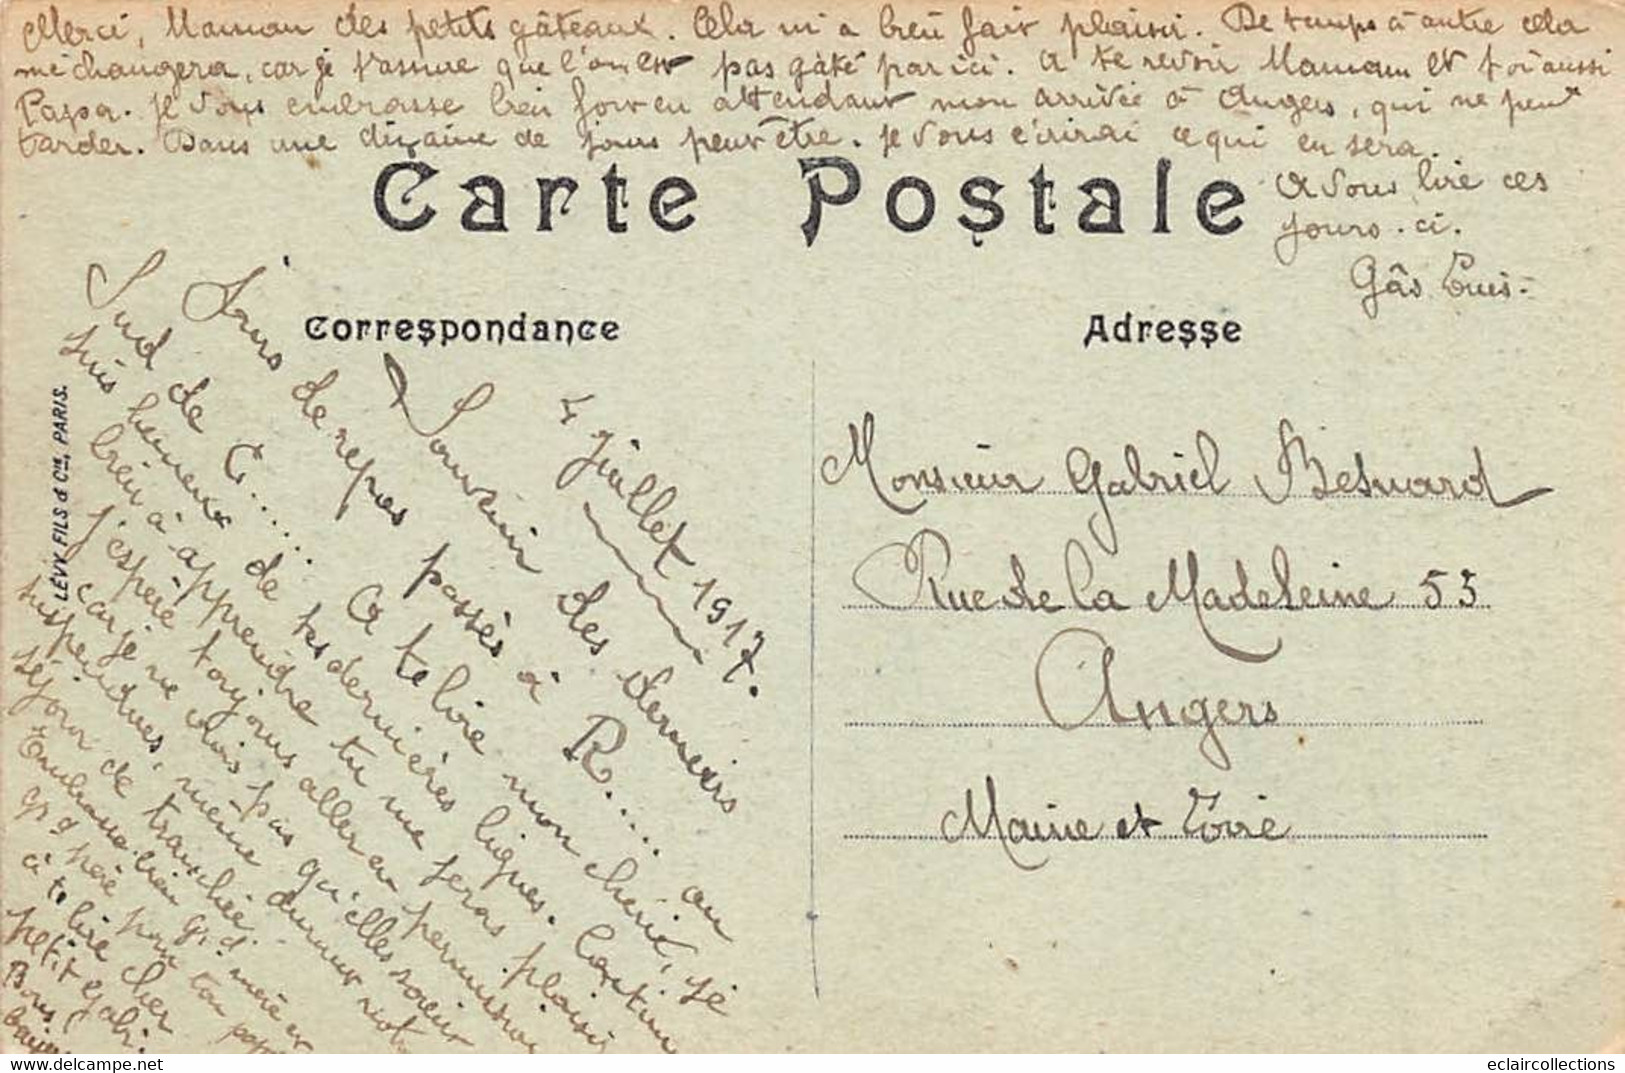 Merci, Maman des petits gâteaux. Cela m'a bien fait plaisir. De temps à autre cela
me changera, car je t'assure que l'on est pas gâté par ici. A te revoir Maman et toi aussi
Papa. Je vous embrasse bien fort en attendant mon arrivée à Angers, qui ne peut
tarder. Dans une dizaine de jours peut être. Je vous écrirai ce qui en sera.
A vous lire ces
jours-ci.
Gâs
Carte Postale
Correspondance
Adresse
LÉVY FILS & Cie, PARIS.
4 Juillet 1917.
Souvenir des derniers
Jours de repos passés à R.... au
Sud de C..... A te lire mon chéri, je
suis heureux de tes dernières lignes. Continue
bien à apprendre tu me feras plaisir
J'espère toujours aller en permission
car je ne crois pas qu'elles soient
suspendues, même durant
séjour de tranchée.
Embrasse bien gd mère et
gd père pour ton
à te lire cher
petit Gabi.
Bons
Monsieur Gabriel Besnard
Rue de la Madeleine 53
Angers
Maine et Loire
eclaircollections